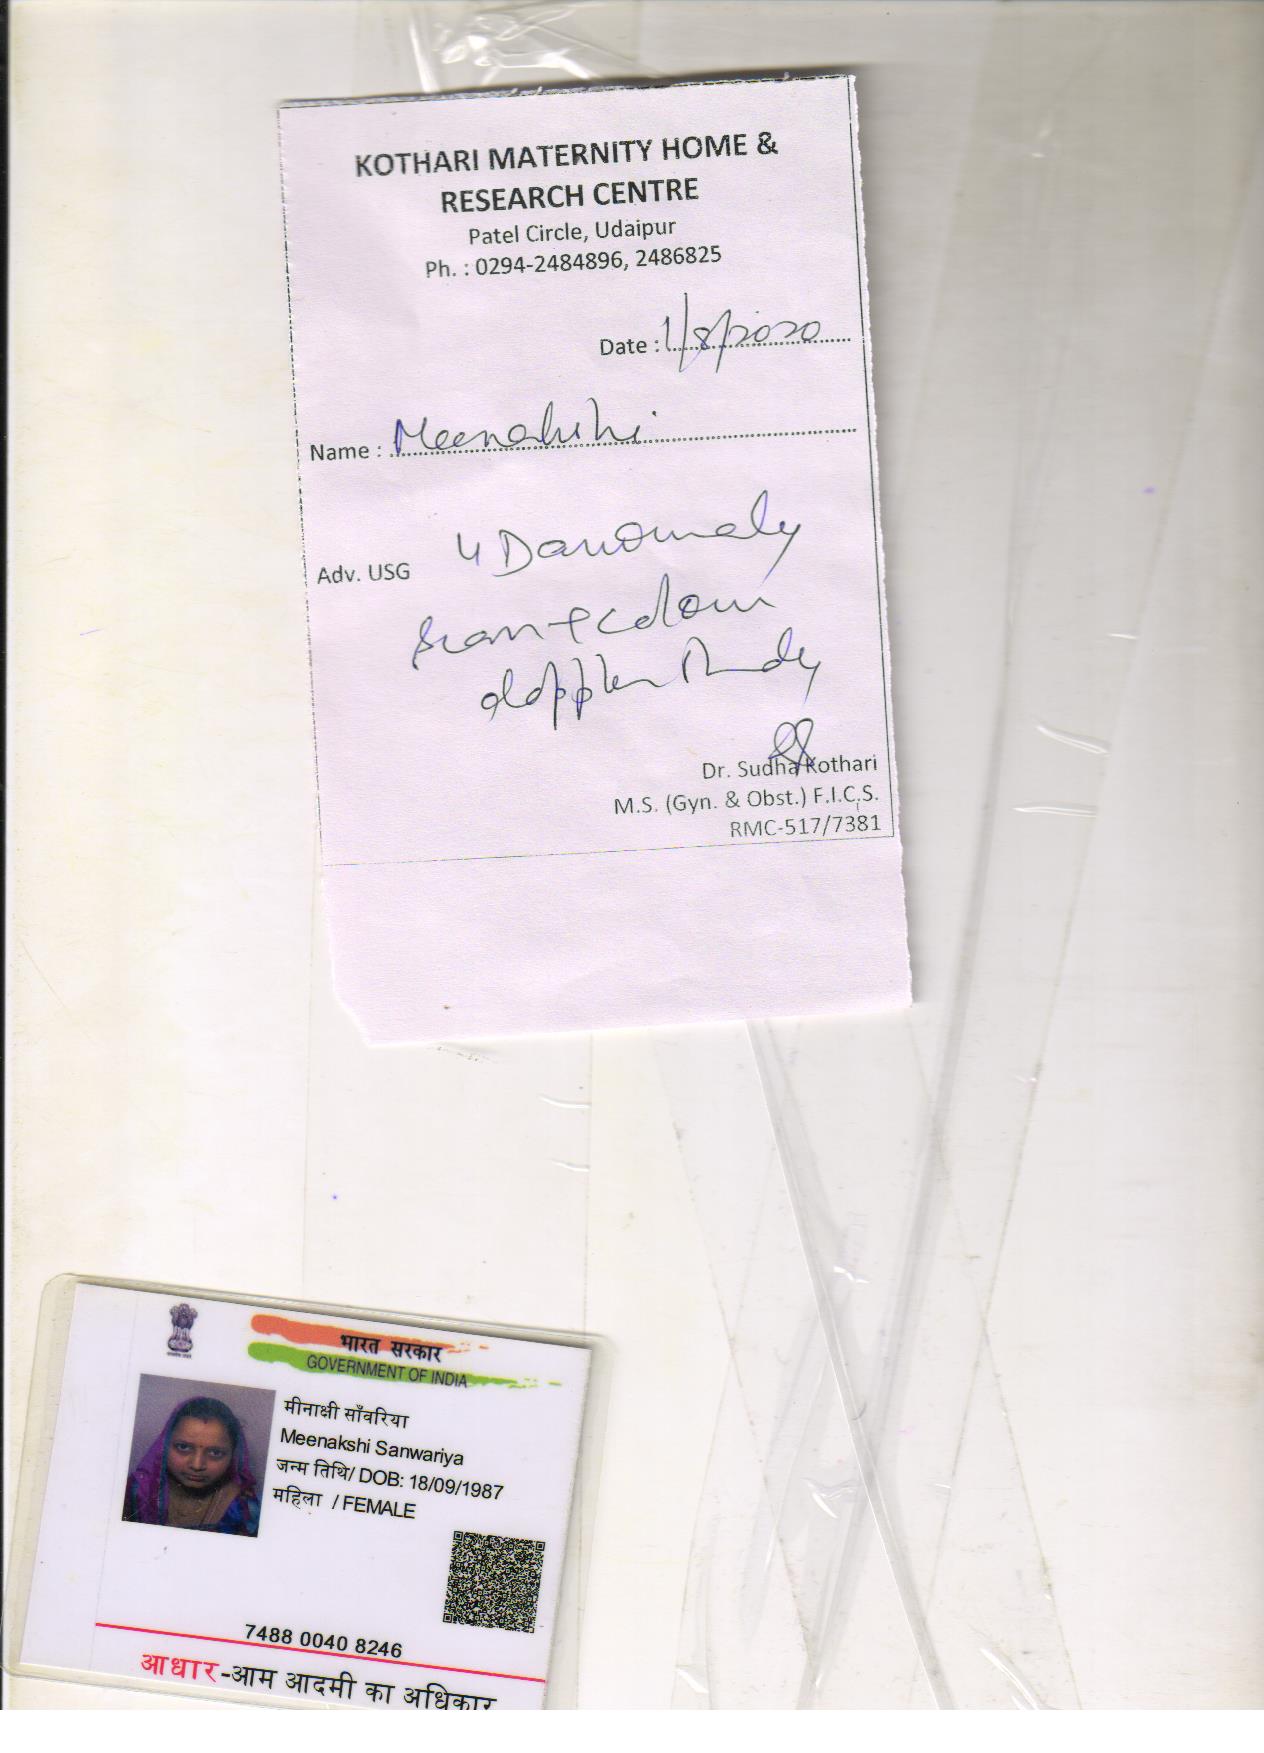 KOTHARI MATERNITY HOME &
RESEARCH CENTRE
Patel Circle, Udaipur
Ph. : 0294-2484896, 2486825
Date : 1/8/2020
Name : Meenakshi
Adv. USG 4 D anomaly
scan + colour
doppler study
Dr. Sudha Kothari
M.S. (Gyn. & Obst.) F.I.C.S.
RMC-517/7381
भारत सरकार
GOVERNMENT OF INDIA
मीनाक्षी साँवरिया
Meenakshi Sanwariya
जन्म तिथि/ DOB: 18/09/1987
महिला / FEMALE
7488 0040 8246
आधार-आम आदमी का अधिकार